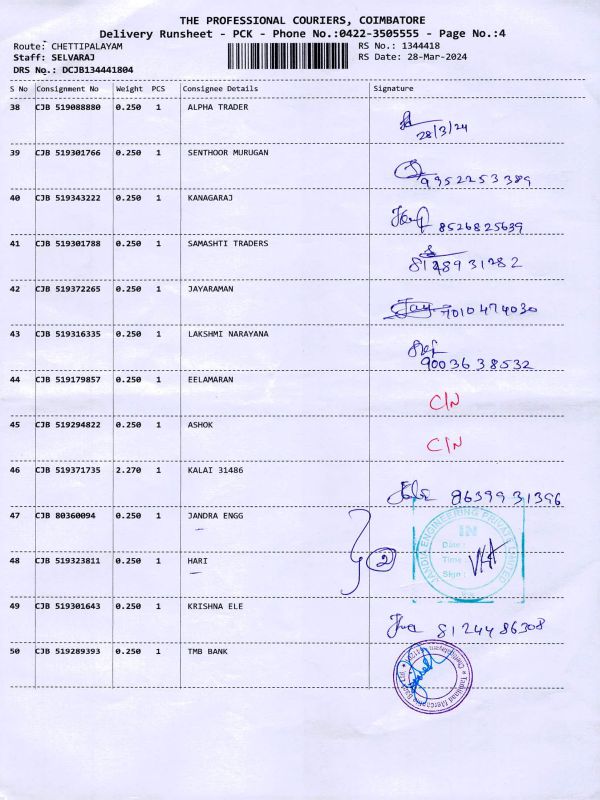 THE PROFESSIONAL COURIERS, COIMBATORE
Delivery Runsheet - PCK - Phone No.:0422-3505555 - Page No.:4
Route: CHETTIPALAYAM RS No.: 1344418
Staff: SELVARAJ RS Date: 28-Mar-2024
DRS No.: DCJB134441804
S No Consignment No Weight PCS Consignee Details Signature
38 CJB 519088880 0.250 1 ALPHA TRADER
28/3/24
39 CJB 519301766 0.250 1 SENTHOOR MURUGAN
9952253389
40 CJB 519343222 0.250 1 KANAGARAJ
8526825639
41 CJB 519301788 0.250 1 SAMASHTI TRADERS
8148931282
42 CJB 519372265 0.250 1 JAYARAMAN
Jay 7010474030
43 CJB 519316335 0.250 1 LAKSHMI NARAYANA
9003638532
44 CJB 519179857 0.250 1 EELAMARAN
C/N
45 CJB 519294822 0.250 1 ASHOK
C/N
46 CJB 519371735 2.270 1 KALAI 31486
8639931396
47 CJB 80360094 0.250 1 JANDRA ENGG
JANDRA ENGINEERING PRIVATE LIMITED
IN
Date :
Time :
Sign :
2
48 CJB 519323811 0.250 1 HARI
49 CJB 519301643 0.250 1 KRISHNA ELE
8124486308
50 CJB 519289393 0.250 1 TMB BANK
Tamilnad Mercantile Bank